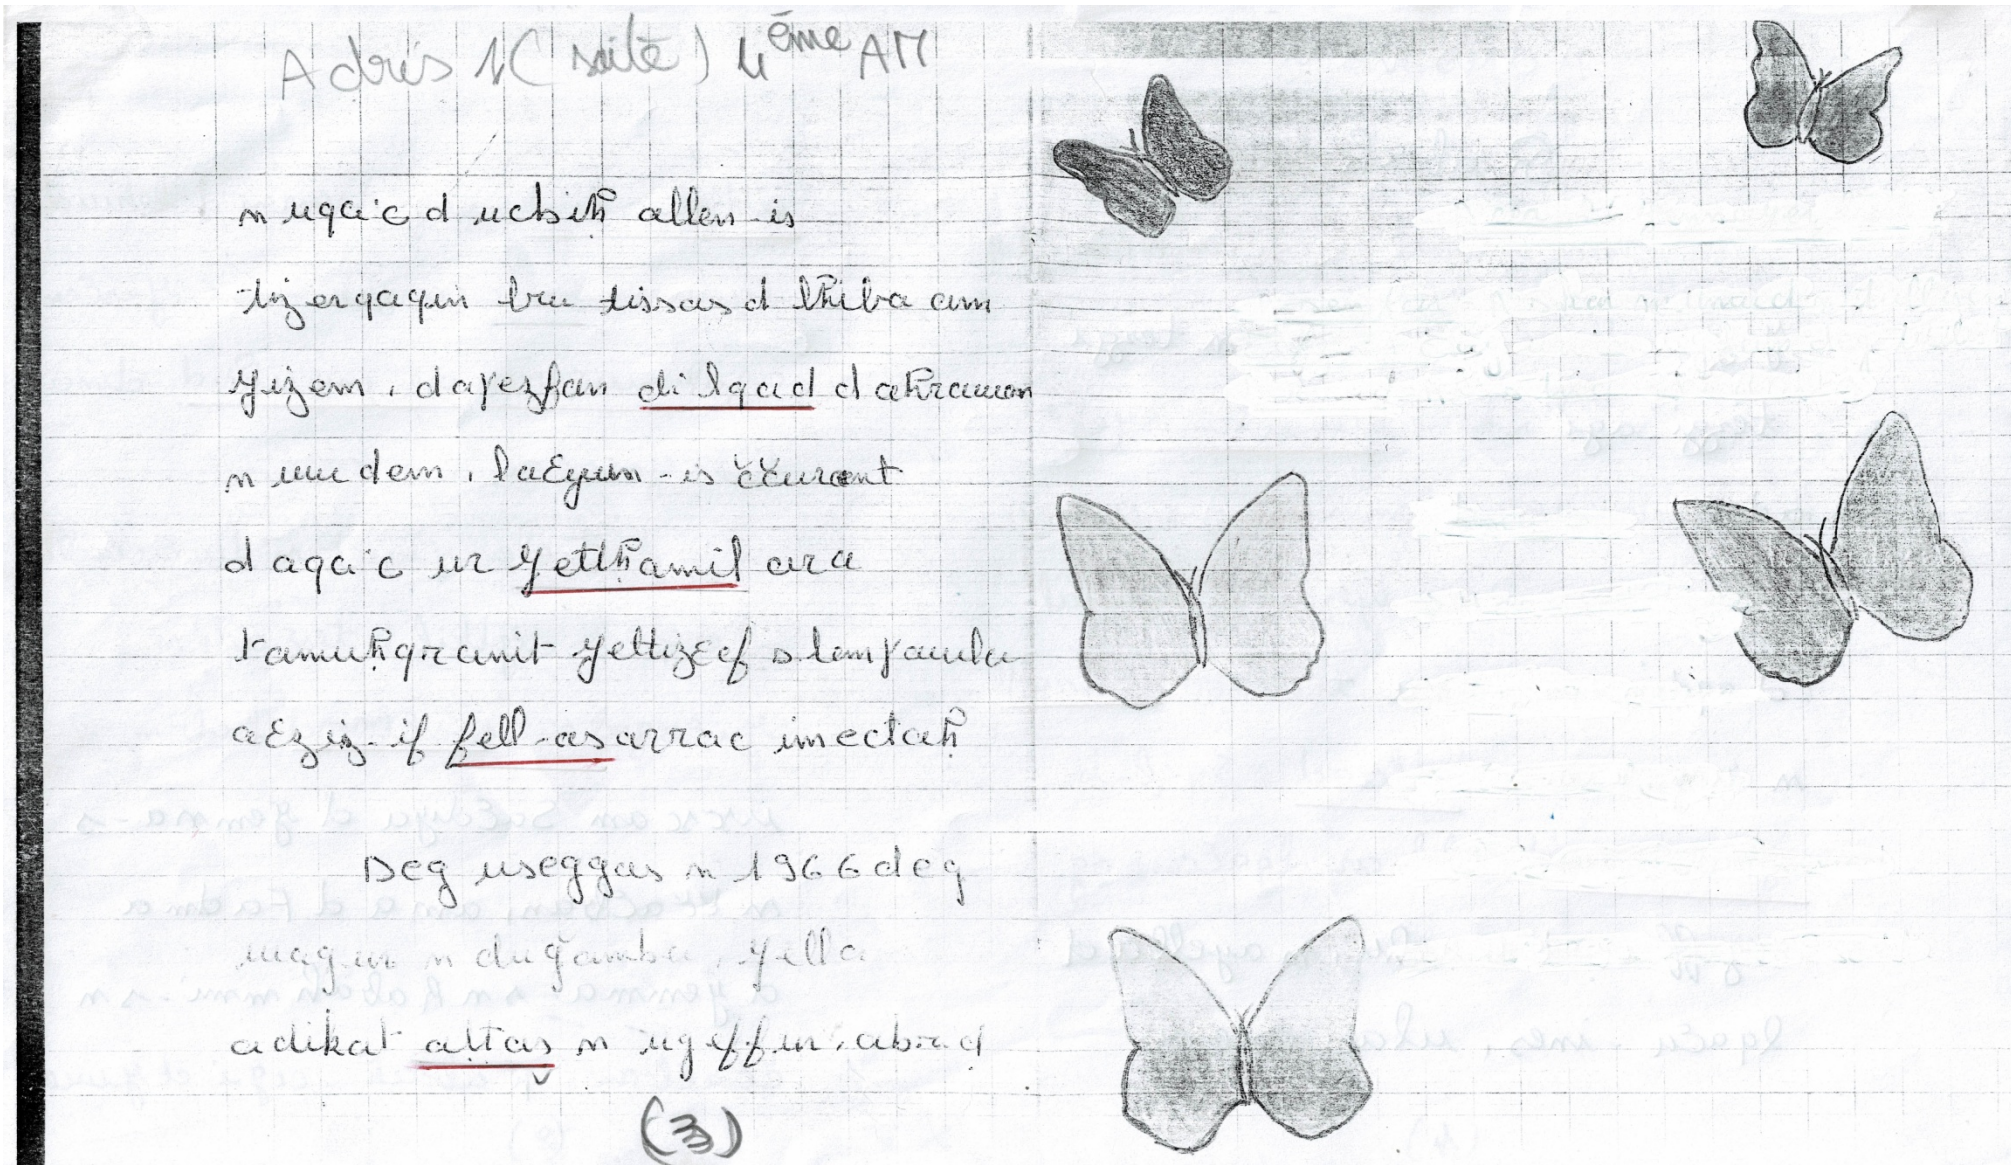 Adris 1 (suite) 4ème AM
n uqaïc d ucbiḥ allen-is
tizerqaqin bu tissas d lhiba am
yizem, d aɣezfan di lqad d aḥrawan
n wudem, laɛyun-is ččurent
d aqaïc ur yettḥamil ara
tamuḥqranit yettizɛef s lemɣawla
aɛziz-if fell-as arrac imectaḥ
Deg useggas n 1966 deg
wagur n duǧambu, yella
adikat attas n ugeffur, abrid
(3)